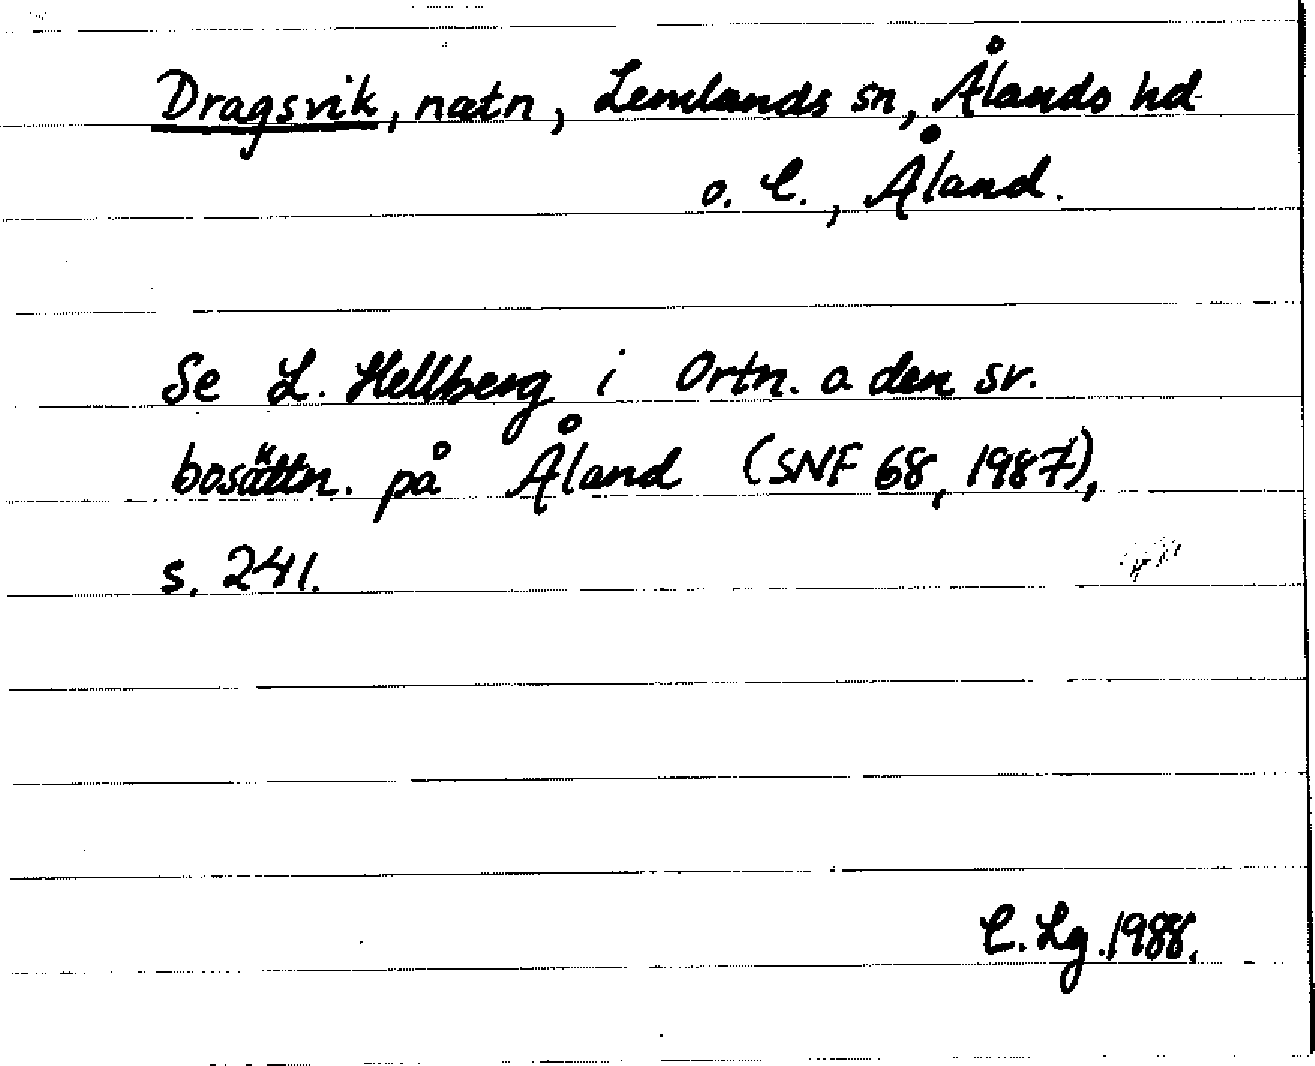 Dragsvik, natn, Lemlands sn, Ålands hd
o. l., Åland.
Se L. Hellberg i Ortn. o den sv.
bosättn. på Åland (SNF 68, 1987),
s. 241.
C. Lg. 1988.